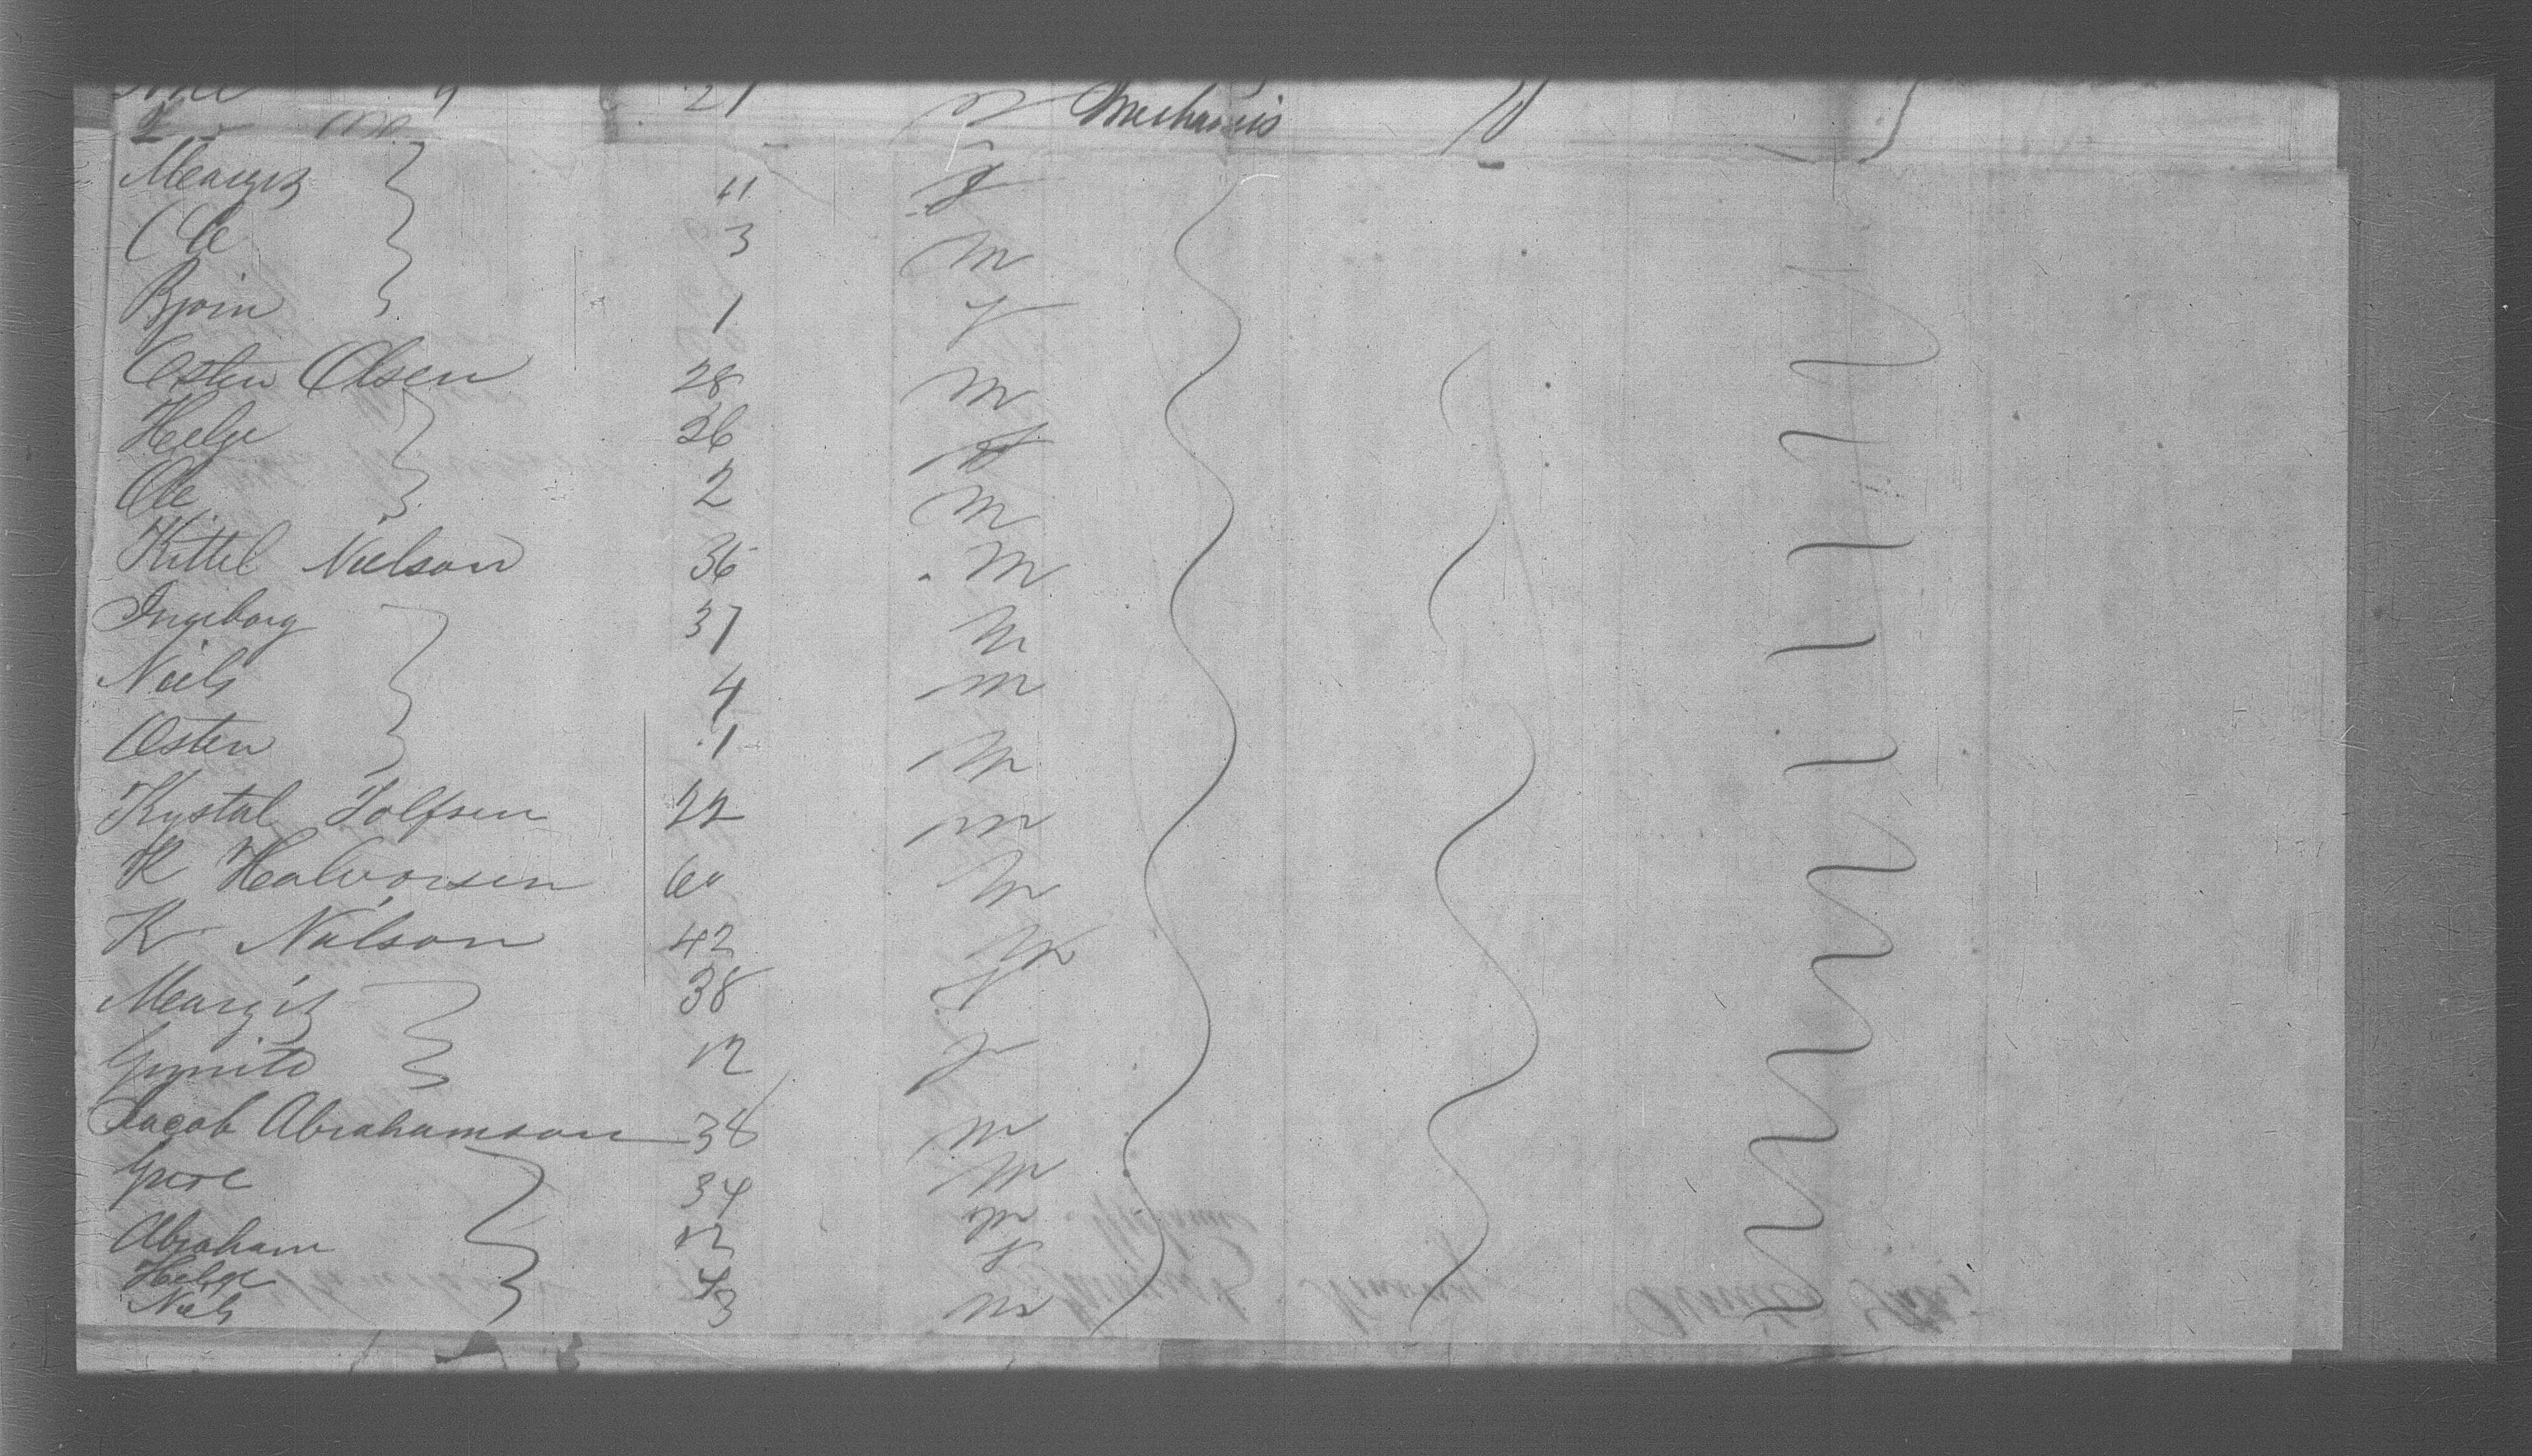 21 Mechanic
Margit 11 f
Ole 3 m
Bjoin 1 f
Osten Olsen 28 m
Helge 26 f
Ole 2 m
Kittel Nielson 36 m
Ingeborg 37 m
Niels 4 m
Osten 1 m
Kystal Tolfsen 22 m
K Halvorsen 60 m
K Nilson 42 m
Margit 38 f
Gunnild 12 f
Jacob Abrahamson 38 m
Gure 34 m
Abraham 12 m
Helge 4 f
Niels 3 m